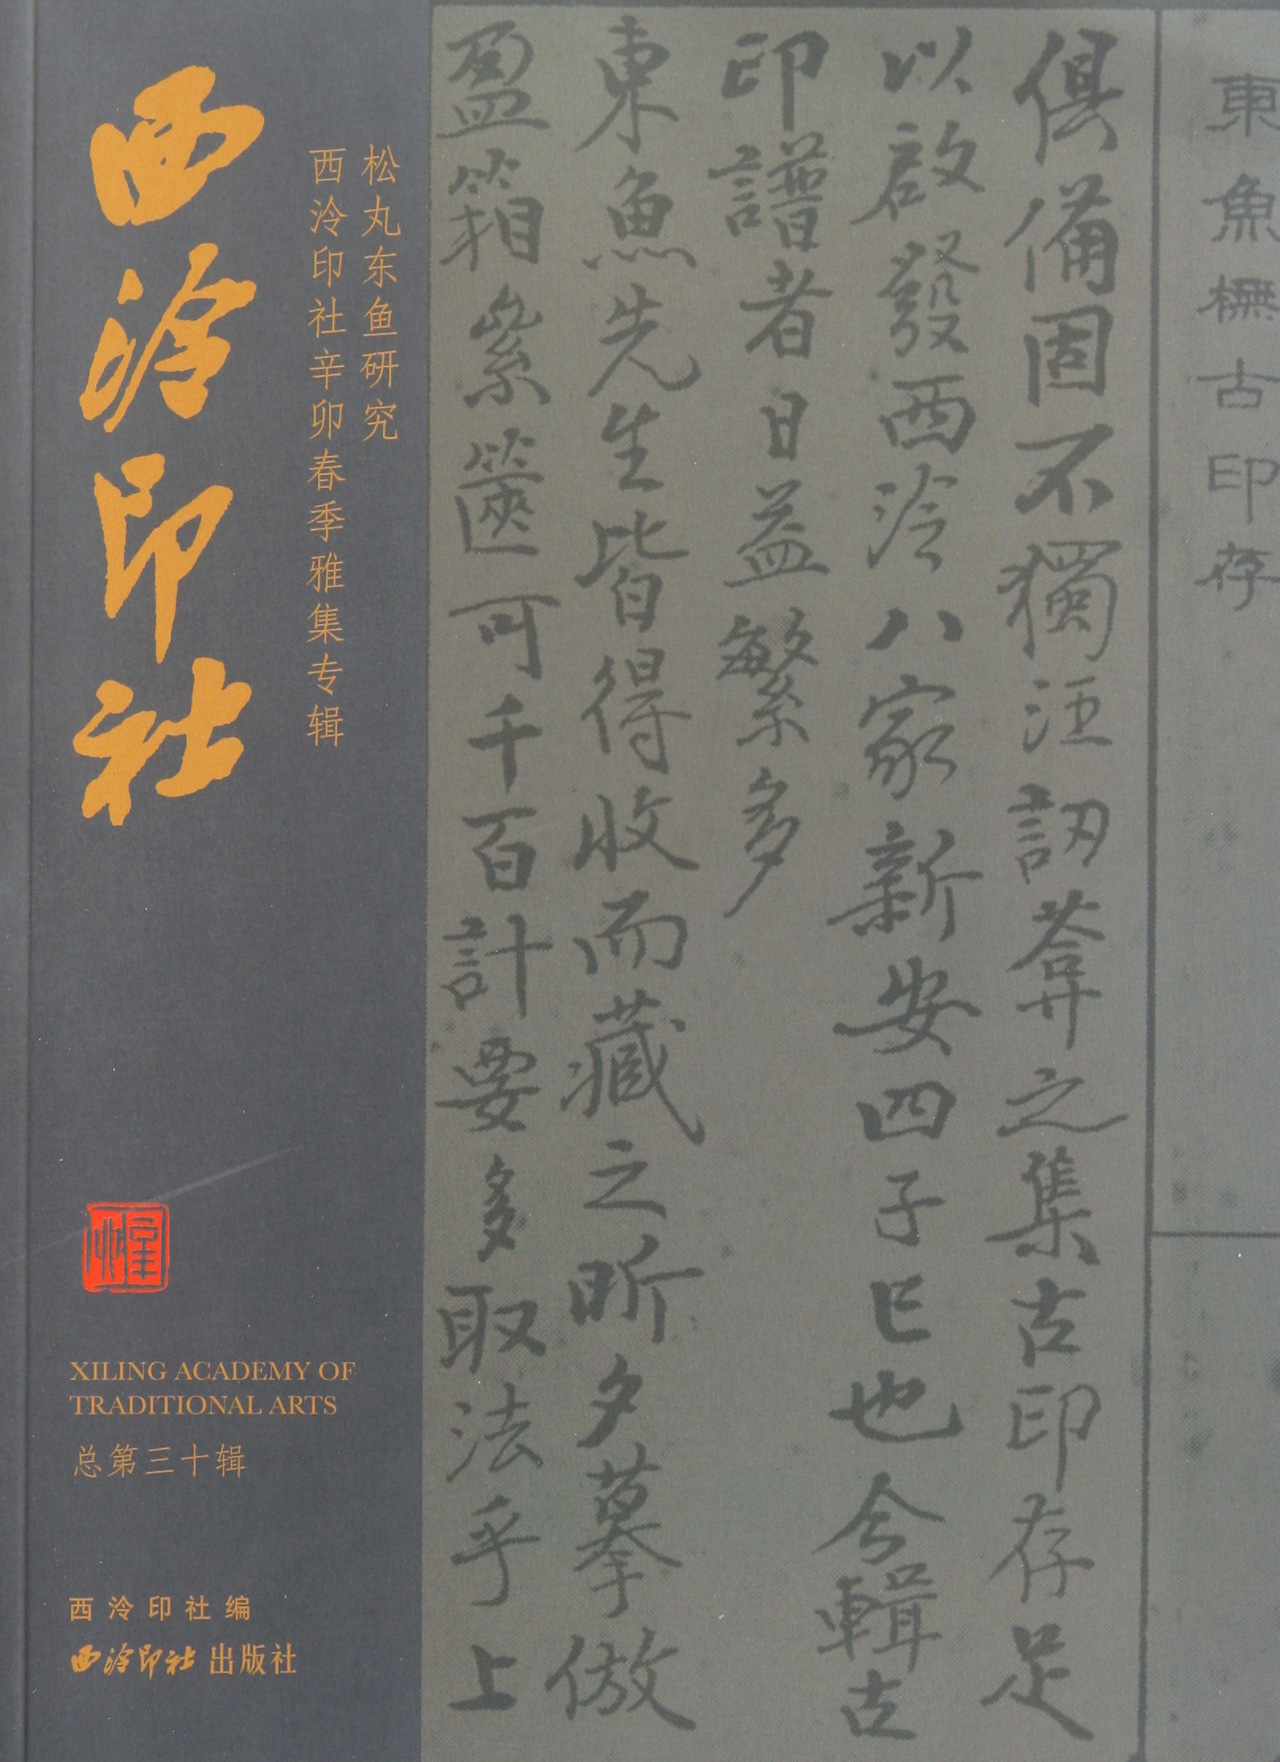 西泠印社
松丸东鱼研究
西泠印社辛卯春季雅集专辑
XILING ACADEMY OF
TRADITIONAL ARTS
总第三十辑
西泠印社编
西泠印社出版社
東魚橅古印存
俱備固不獨汪訒葊之集古印存足
以啟發西泠八家新安四子已也今輯古
印譜者日益繁多
東魚先生皆得收而藏之昕夕摹倣
盈箱絫篋可千百計要多取法乎上